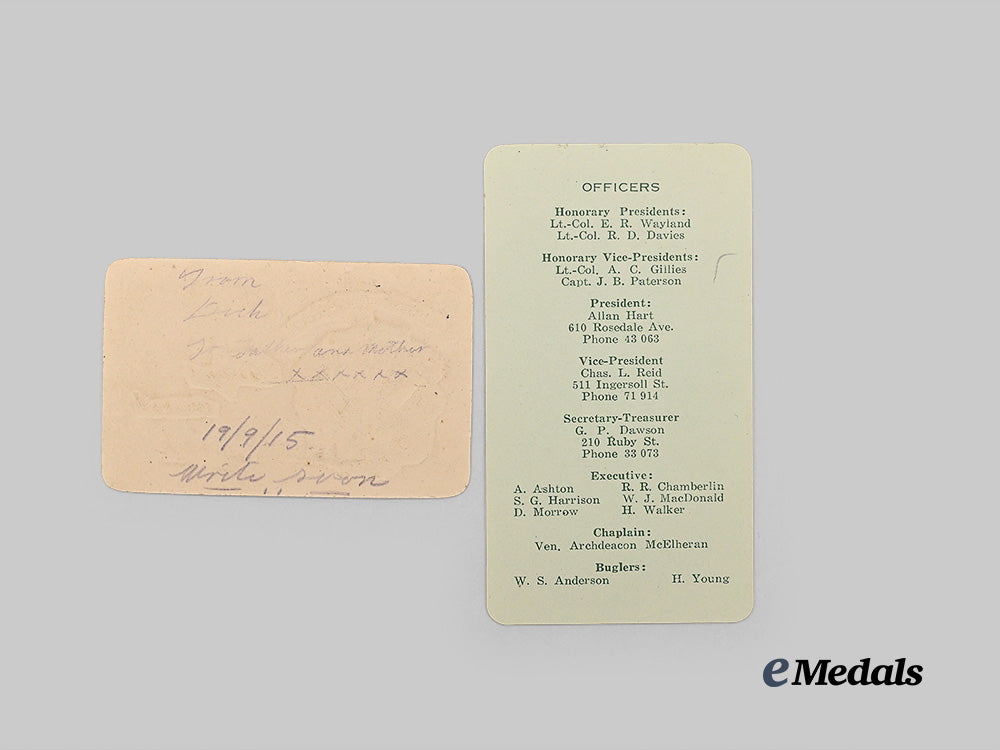 From
Dick
To Father and Mother
xxxxxx
19/9/15
Write soon
OFFICERS
Honorary Presidents:
Lt.-Col. E. R. Wayland
Lt.-Col. R. D. Davies
Honorary Vice-Presidents:
Lt.-Col. A. C. Gillies
Capt. J. B. Paterson
President:
Allan Hart
610 Rosedale Ave.
Phone 43 063
Vice-President
Chas. L. Reid
511 Ingersoll St.
Phone 71 914
Secretary-Treasurer
G. P. Dawson
210 Ruby St.
Phone 33 073
Executive:
A. Ashton R. R. Chamberlin
S. G. Harrison W. J. MacDonald
D. Morrow H. Walker
Chaplain:
Ven. Archdeacon McElheran
Buglers:
W. S. Anderson H. Young
eMedals